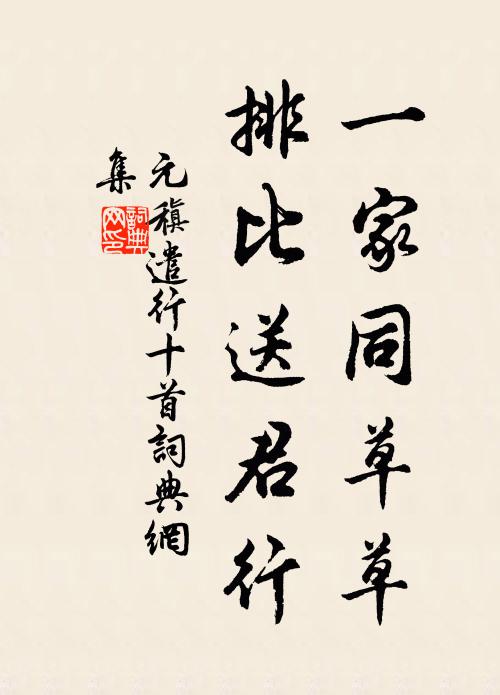 一家同草草
排比送君行
元稹遣行十首詞典網
集
詞典
网印